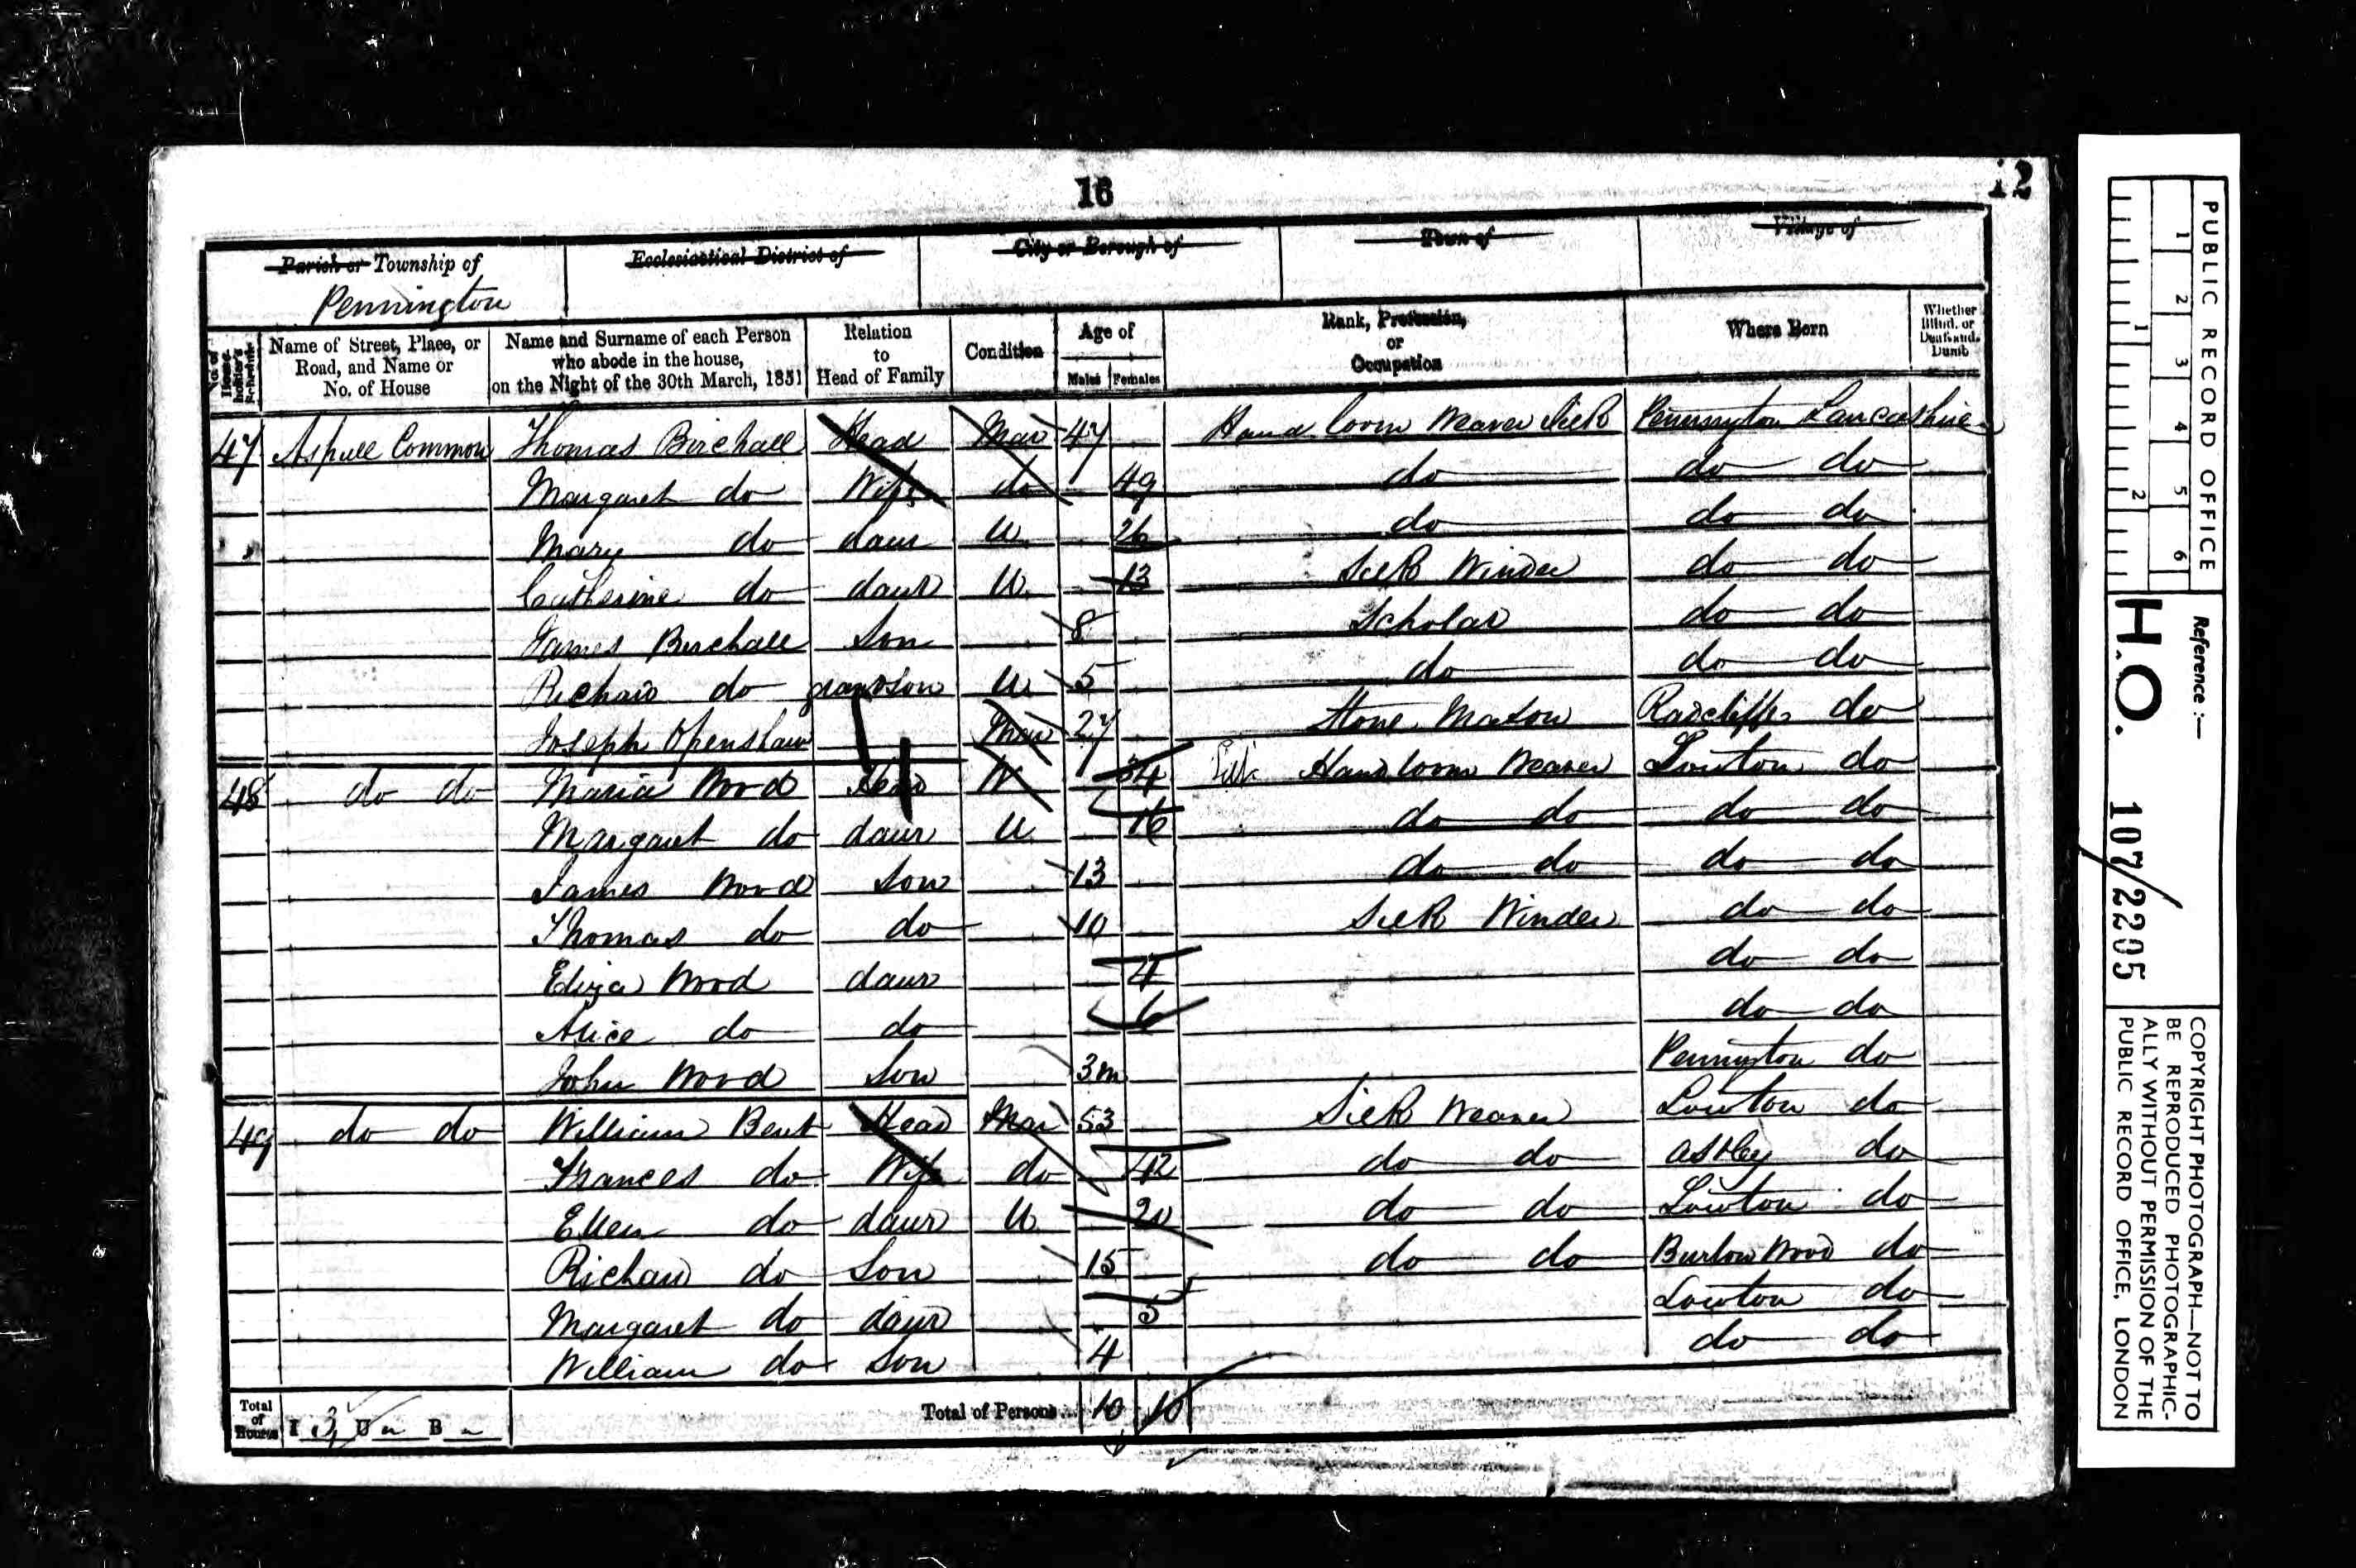 16
12
Parish or Township of
Ecclesiastical District of
City or Borough of
Town of
Village of
Pennington
Name of Street, Place, or Road, and Name or No. of House
Name and Surname of each Person who abode in the house, on the Night of the 30th March, 1851
Relation to Head of Family
Condition
Age of
Males Females
Rank, Profession, or Occupation
Where Born
Whether Blind, or Deaf and Dumb
47 Aspull Common Thomas Birchall Head Mar 47 Hand loom Weaver Silk Pennington Lancashire
Margaret do Wife do 49 do do do
Mary do daur U 26 do do do
Catherine do daur U 13 Silk Winder do do
James Birchall Son 8 Scholar do do
Richard do grandson U 5 do do do
Joseph Openshaw Mar 27 Stone Mason Radcliffe do
48 do do Maria Wood Head W 34 Silk Hand loom Weaver Lowton do
Margaret do daur U 16 do do do do
James Wood Son 13 do do do do
Thomas do do 10 Silk Winder do do
Eliza Wood daur 4 do do
Alice do do 6 do do
John Wood Son 3m Pennington do
49 do do William Bent Head Mar 53 Silk Weaver Lowton do
Frances do Wife do 42 do do Astley do
Ellen do daur U 20 do do Lowton do
Richard do Son 15 do do do
Margaret do daur 5 Lowton do
William do Son 4 do do
Total of Houses I 3 U B Total of Persons... 10 10
PUBLIC RECORD OFFICE
1 2 3 4 5 6
1 2
Reference :—
H.O. 107/2205
COPYRIGHT PHOTOGRAPH—NOT TO
BE REPRODUCED PHOTOGRAPHIC-
ALLY WITHOUT PERMISSION OF THE
PUBLIC RECORD OFFICE, LONDON